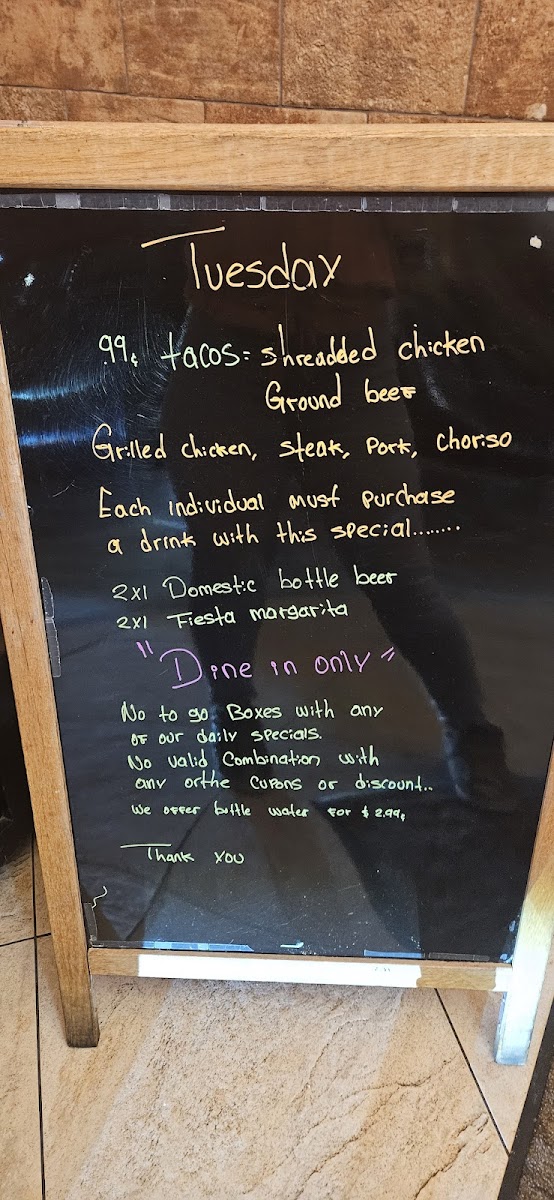 Tuesday
99¢ tacos = shreadded chicken
Ground beef
Grilled chicken, steak, Pork, choriso
Each individual must purchase
a drink with this special........
2x1 Domestic bottle beer
2x1 Fiesta margarita
"Dine in only"
No to go Boxes with any
of our daily specials.
No valid Combination with
any orthe Cupons or discount..
We offer bottle water for $ 2.99¢
Thank you